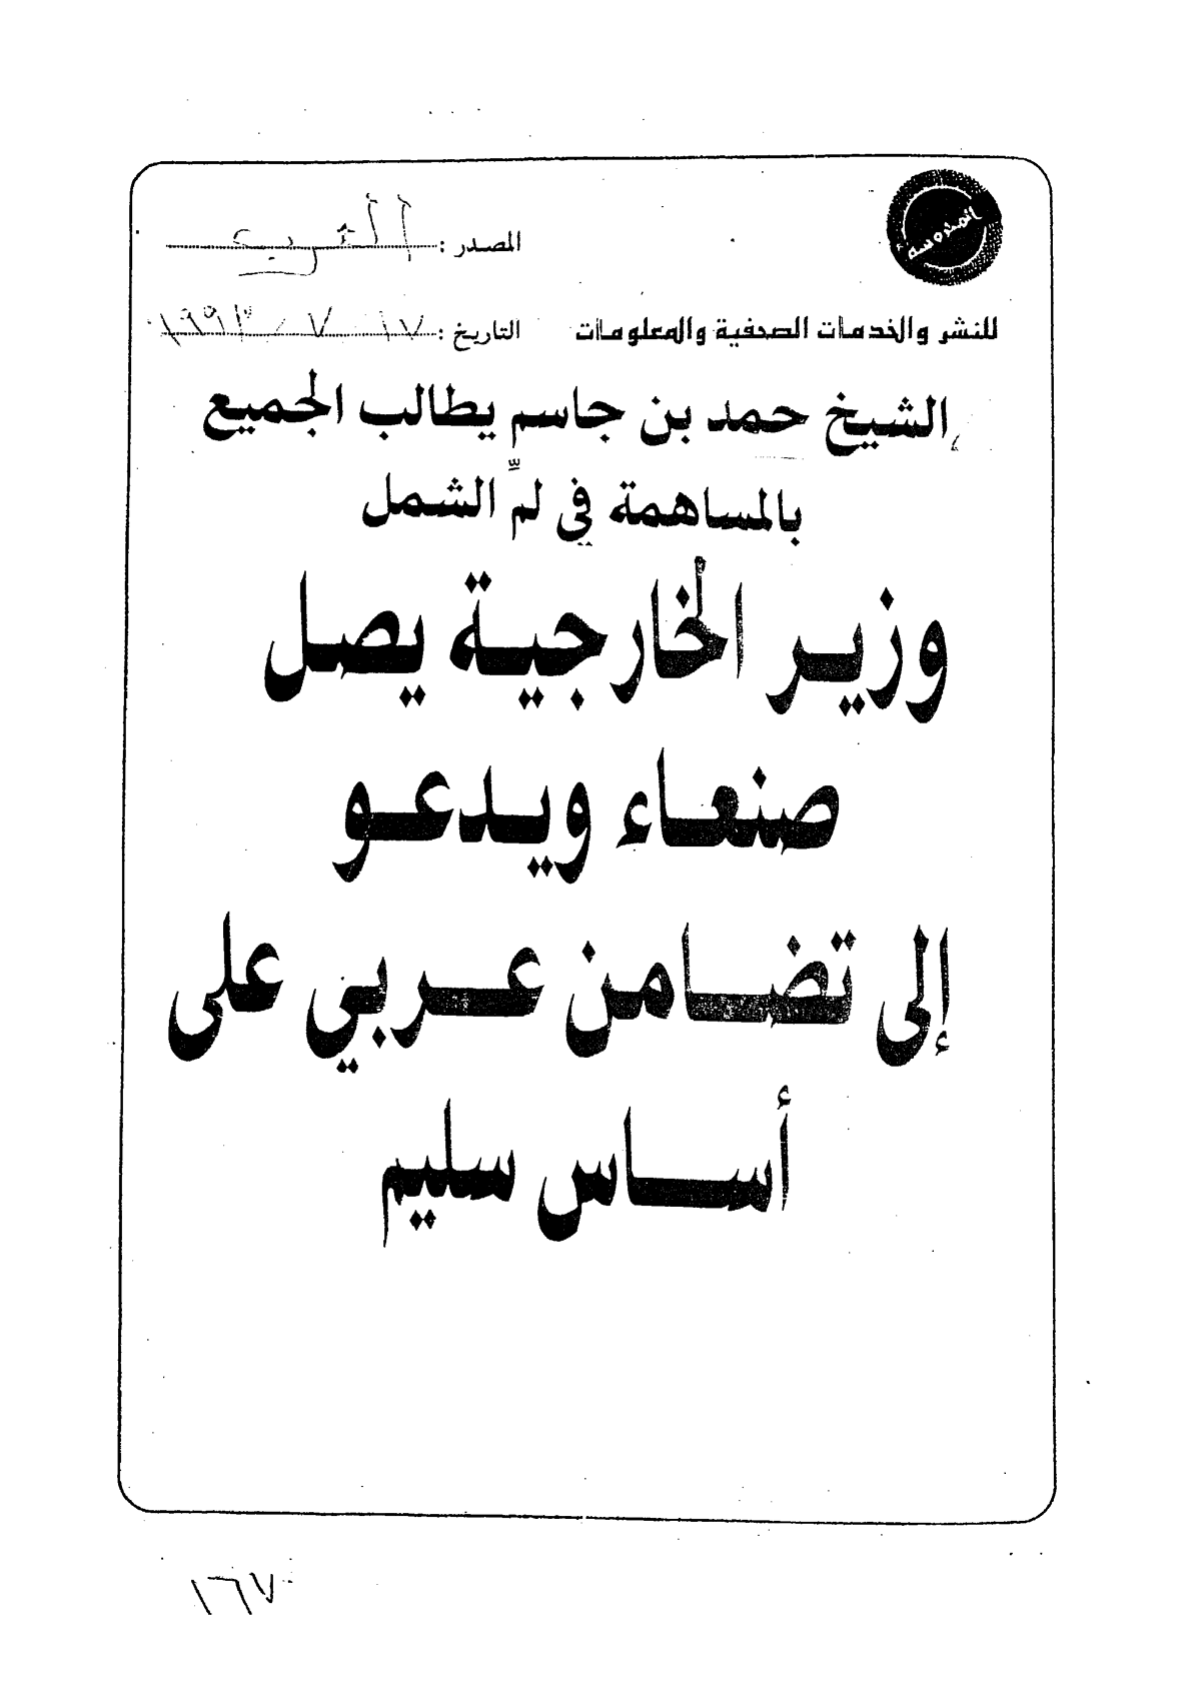 المحروسة
المصدر :
للنشر والخدمات الصحفية والمعلومات
التاريخ : ١٧ / ٧ / ١٩٩٣
الشيخ حمد بن جاسم يطالب الجميع
بالمساهمة في لمِّ الشمل
وزير الخارجية يصل
صنعاء ويدعو
إلى تضامن عربي على
أساس سليم
١٦٧